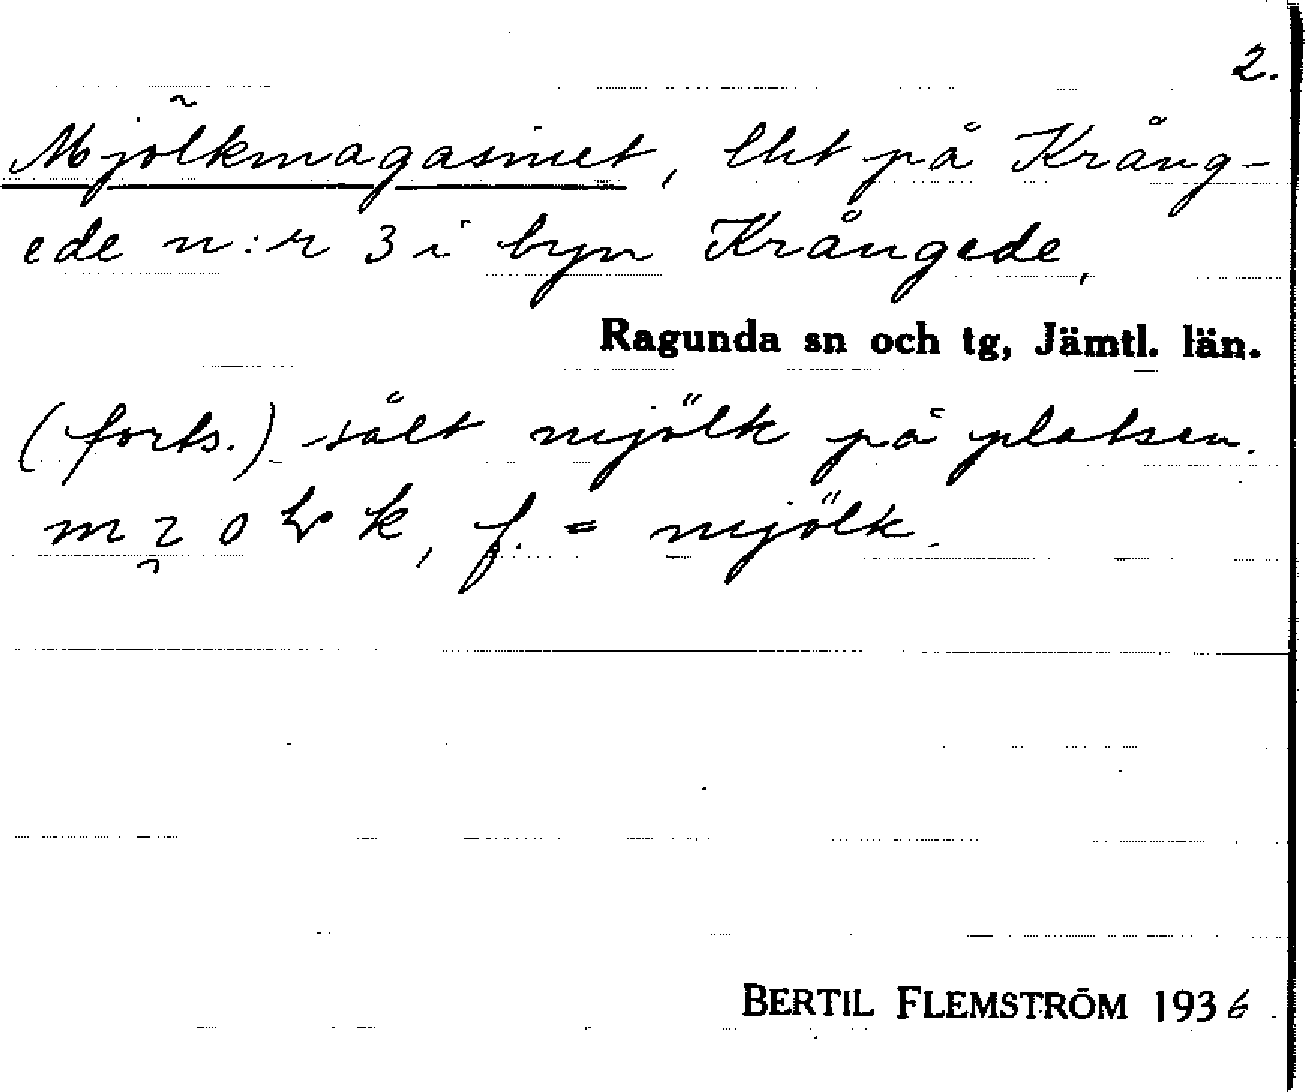 2.
Mjölkmagasinet, lht på Krång-
ede n:r 3 i byn Krångede,
Ragunda sn och tg, Jämtl. län.
(forts.) sålt mjölk på platsen.
k, f. = mjölk.
BERTIL FLEMSTRÖM 1936